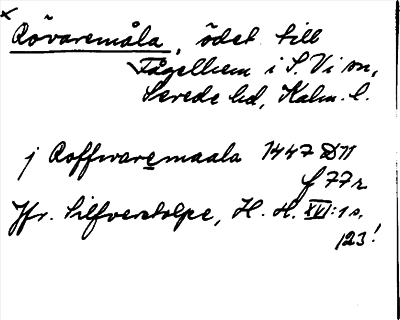 x
Rövaremåla, ödet till
Fågelhem i S. Vi sn,
Sevede hd, Kalm. l.
j Roffwaremaala 1447 D 11
f 77 r
Jfr. Silfverstolpe, H. H. XVI:1 s.
123!